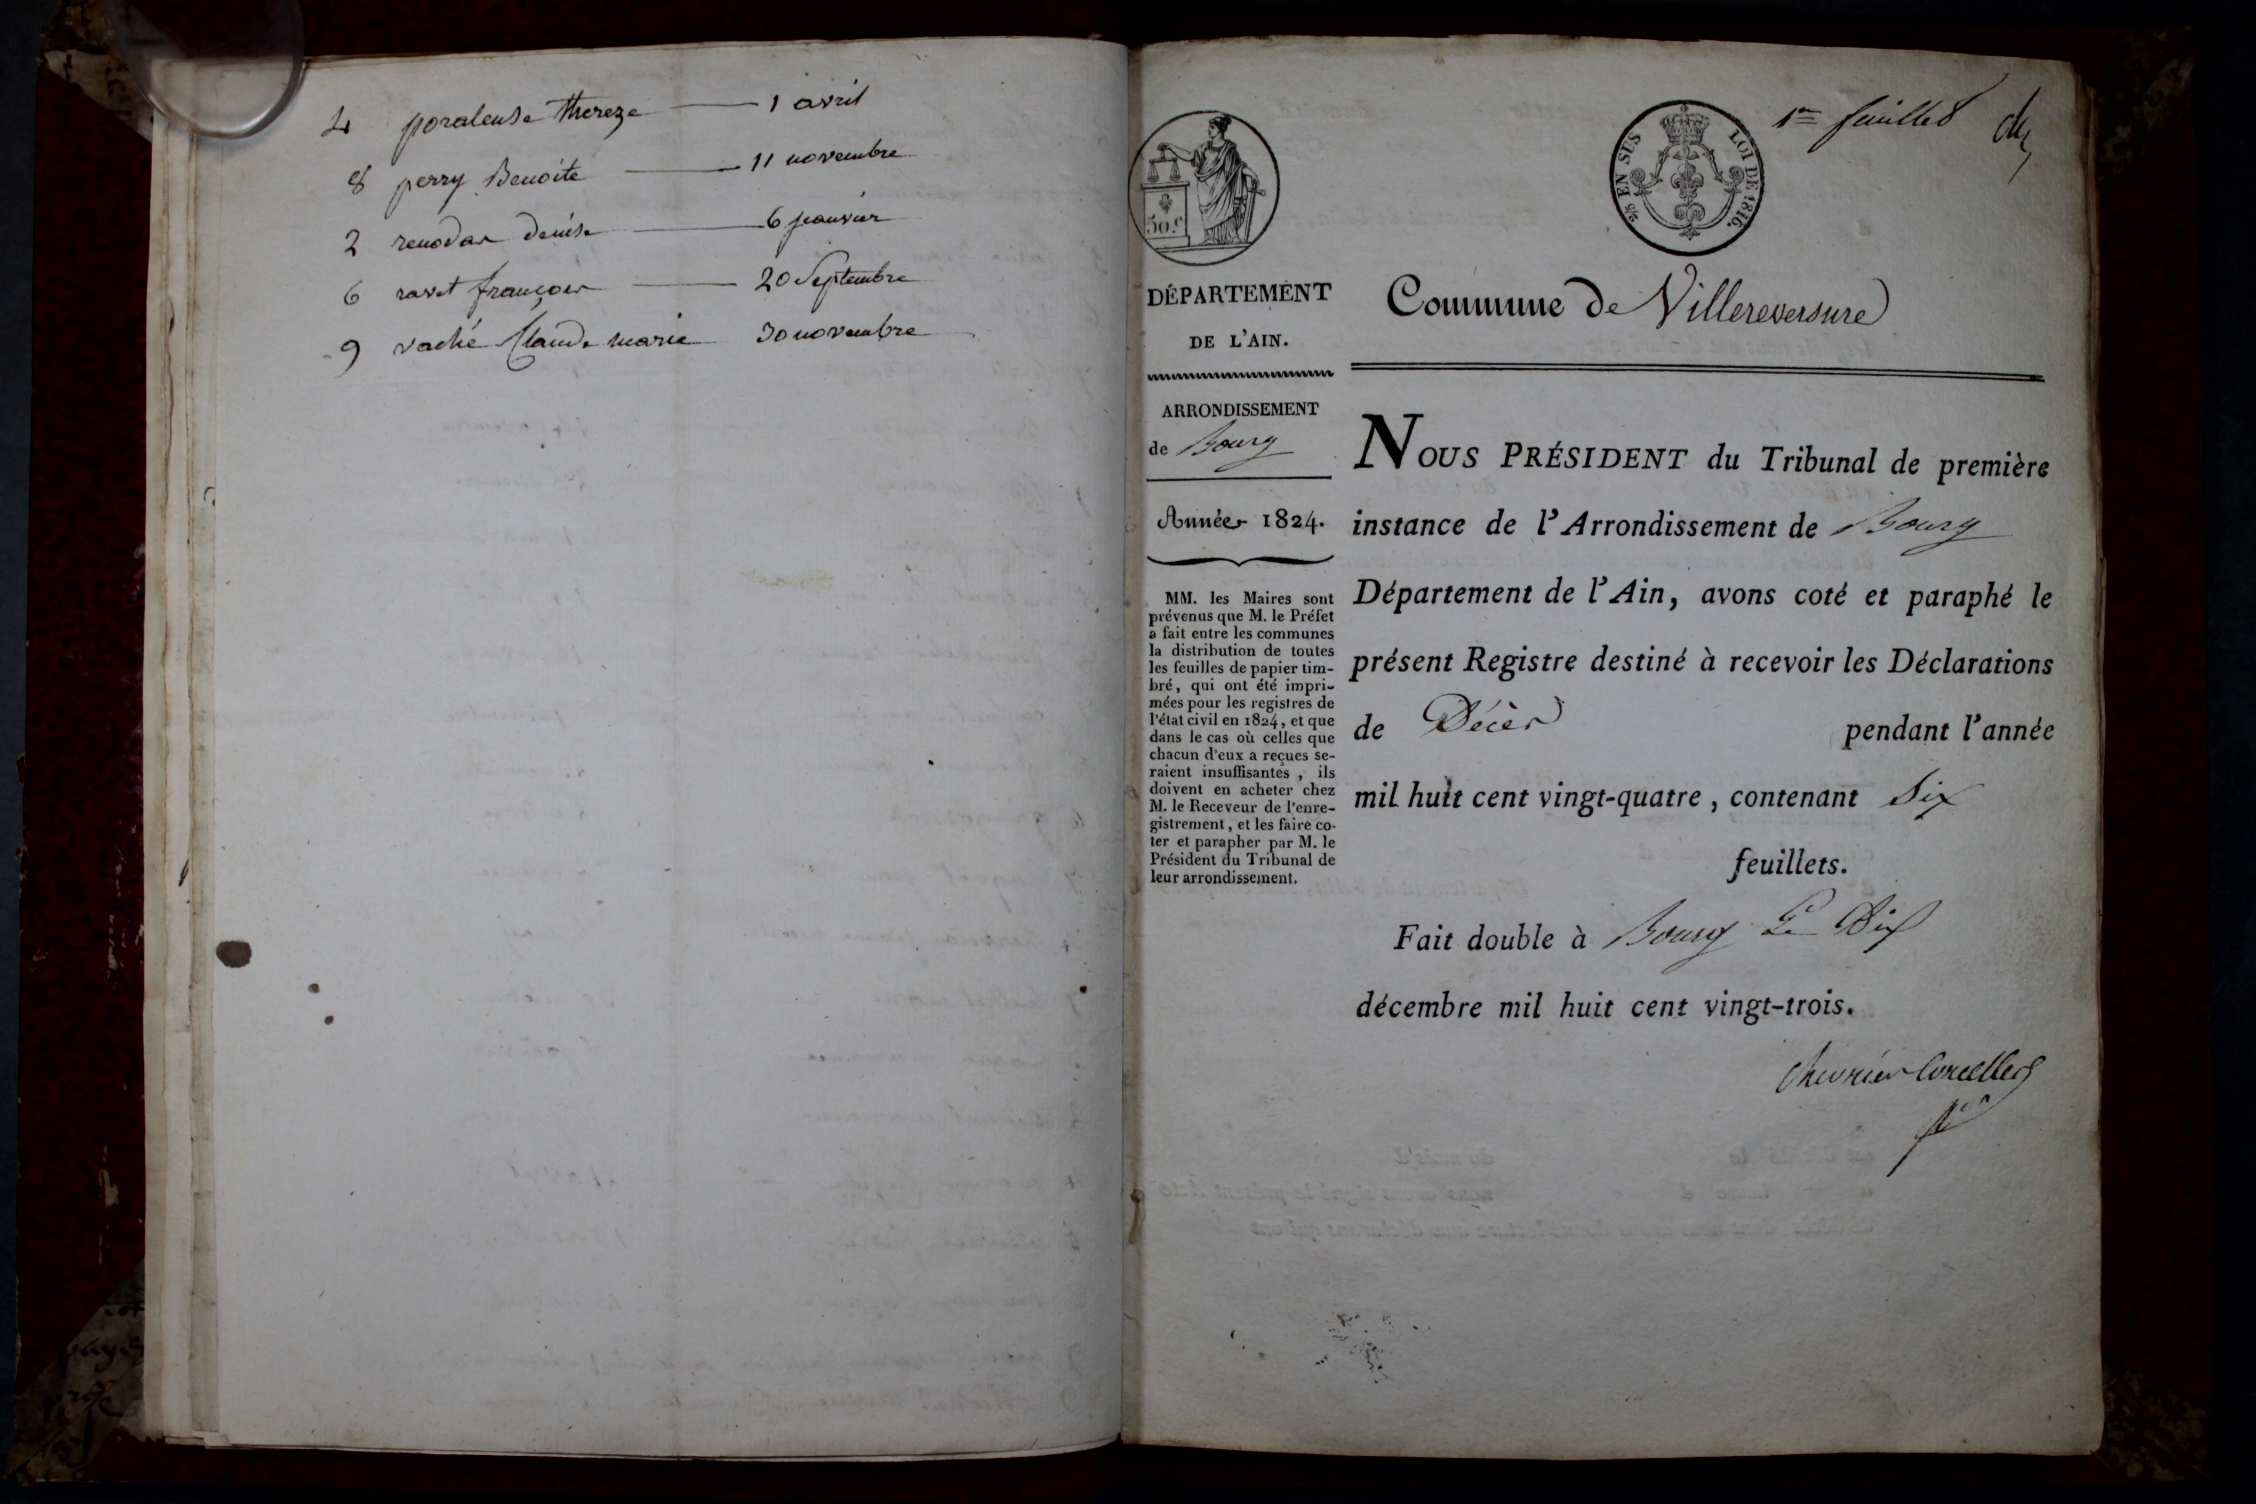 4 poraleuse thereze 1 avril
8 perry Benoite 11 novembre
2 renodar denise 6 janvier
6 ravet françois 20 Septembre
9 vaché Claude marie 30 novembre
1er feuillet
50.c
2/5 EN SUS LOI DE 1816.
DÉPARTEMENT
DE L'AIN.
ARRONDISSEMENT
de Bourg
Année 1824.
MM. les Maires sont
prévenus que M. le Préfet
a fait entre les communes
la distribution de toutes
les feuilles de papier tim-
bré, qui ont été impri-
mées pour les registres de
l'état civil en 1824, et que
dans le cas où celles que
chacun d'eux a reçues se-
raient insuffisantes, ils
doivent en acheter chez
M. le Receveur de l'enre-
gistrement, et les faire co-
ter et parapher par M. le
Président du Tribunal de
leur arrondissement.
Commune de Villereversure
NOUS PRÉSIDENT du Tribunal de première
instance de l'Arrondissement de Bourg
Département de l'Ain, avons coté et paraphé le
présent Registre destiné à recevoir les Déclarations
de Décès pendant l'année
mil huit cent vingt-quatre, contenant Six
feuillets.
Fait double à Bourg Le Dix
décembre mil huit cent vingt-trois.
Chevrier Corcelles